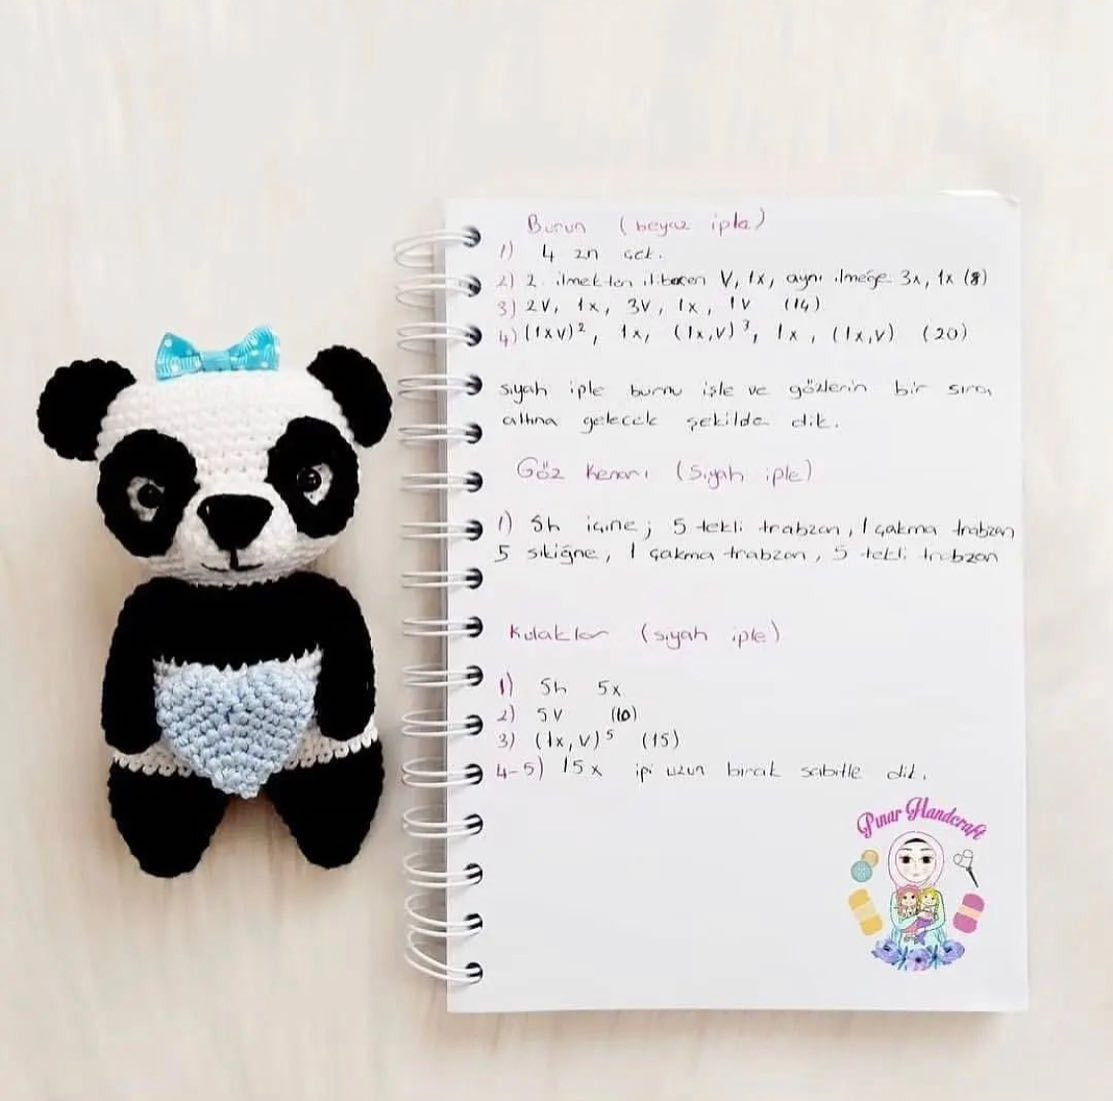 Burun (beyaz iple)
1) 4 zn çek.
2) 2. ilmekten itibaren V, 1x, aynı ilmeğe 3x, 1x (8)
3) 2V, 1x, 3V, 1x, 1V (14)
4) (1xV)², 1x, (1x,V)³, 1x, (1x,V) (20)
siyah iple burnu işle ve gözlerin bir sıra
altına gelecek şekilde dik.
Göz Kenarı (Siyah iple)
1) Sh içine; 5 tekli trabzan, 1 çakma trabzan
5 sıkiğne, 1 çakma trabzan, 5 tekli trabzan
Kulaklar (siyah iple)
1) Sh 5x
2) 5V (10)
3) (1x,V)⁵ (15)
4-5) 15x ipi uzun bırak sabitle dik.
Pınar Handcraft